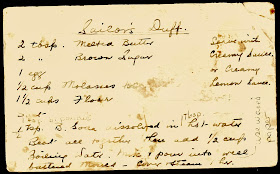 Sailor's Duff.
2 tbsp. Melted Butter
2 " Brown Sugar
1 egg
1/2 cup Molasses
1 1/2 cups Flour
1 tsp. B. Soda dissolved in hot water
Beat all together then add 1/2 cup
Boiling Water. Mix & pour into well
buttered Mould - Cover Steam 1 hr.
Serve with
Creamy Sauce
or Creamy
Lemon Sauce.